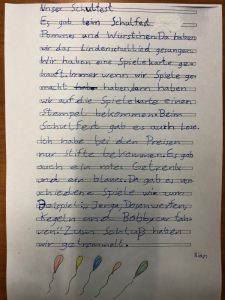 Unser Schulfest
Es gab beim Schulfest
Pommes und Würstchen. Da haben
wir das Lindenschullied gesungen.
Wir haben eine Spielekarte ge-
kauft. Immer wenn wir Spiele ge-
macht haben, dann haben
wir auf die Spielekarte einen
stempel bekommen. Beim
Schulfest gab es auch Lose.
Ich habe bei den Preisen
nur Stifte bekommen. Es gab
auch ein rotes Getrenk
und ein blaues. Da gab es ver-
schiedene Spiele wie zum
Beispiel: Jenga, Dosenwerfen,
Kegeln und Bobbycar fah-
ren. Zum Schluß haben
wir getrommelt.